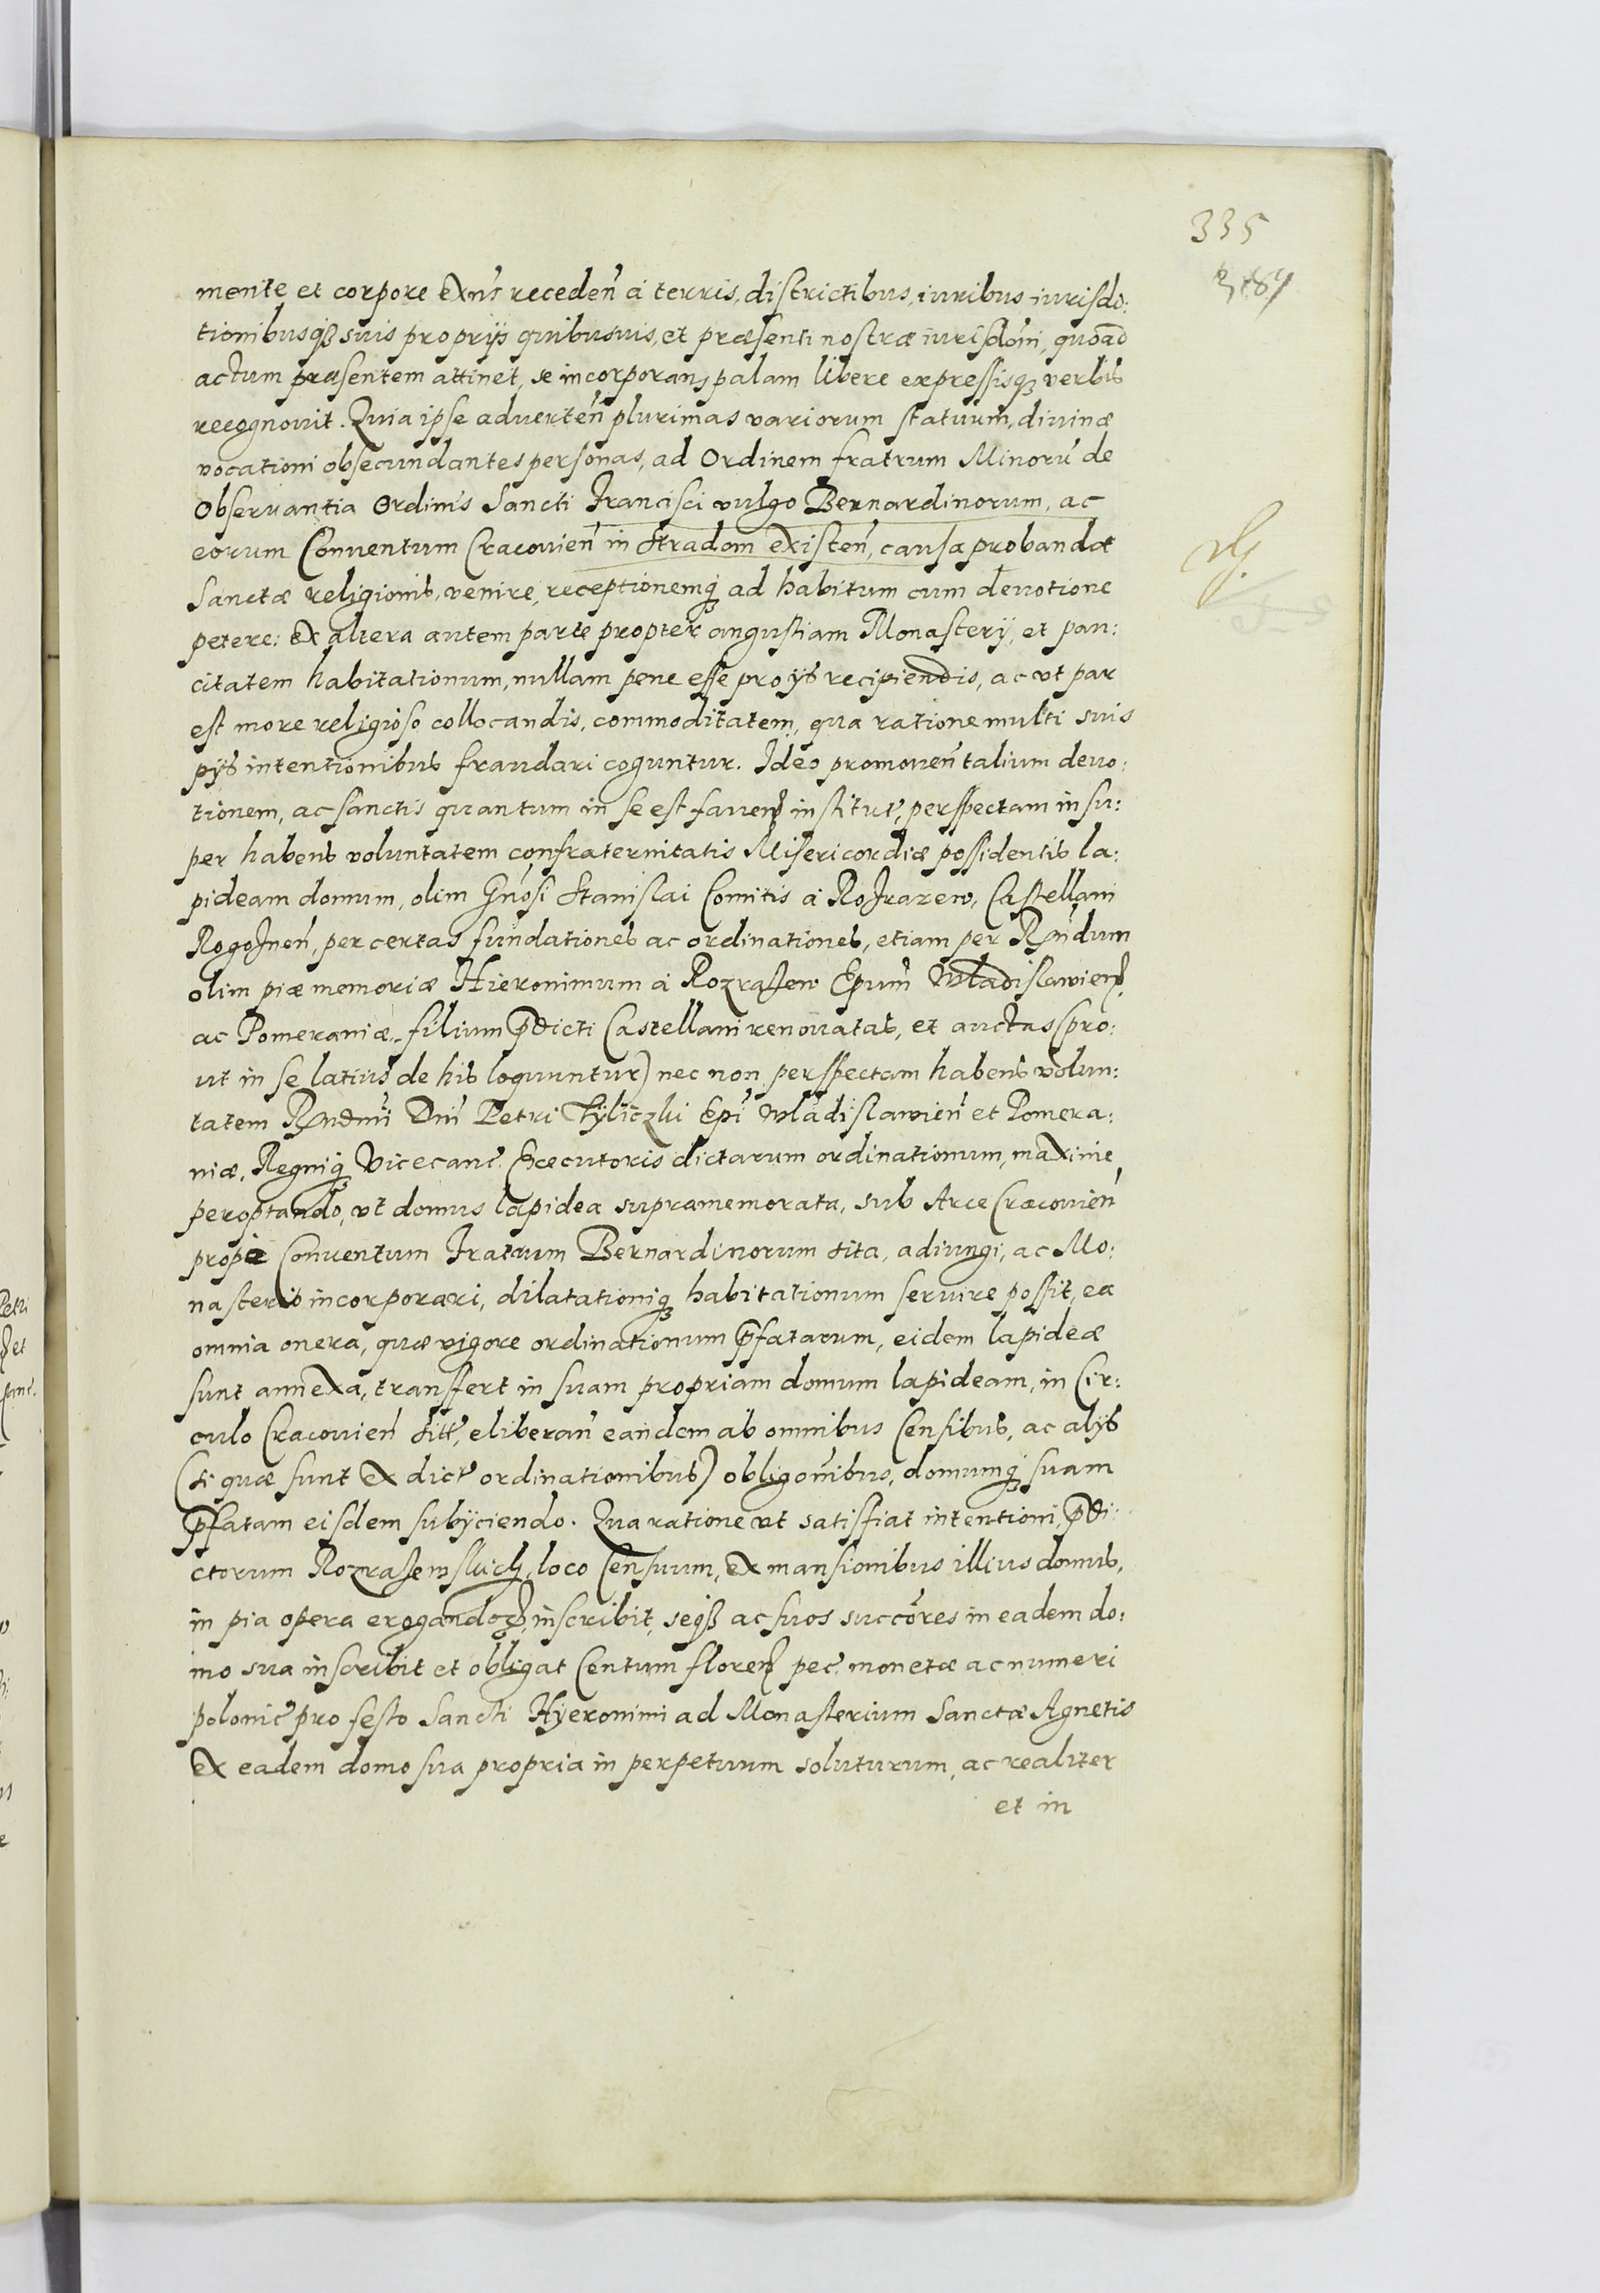 335
mente et corpore exñs receden̄ à terris, districtibus, iuribus iurisdo:
tionibusq3 suis proprijs quibusuis, et præsenti nostræ iurisdōni, quoad
actum præsentem attinet, se incorporans, palam libere expressisq3 verbis
recognouit. Quia ipse aduerten̄ plurimas variorum statuum, diuinæ
vocationi obsecundantes personas, ad Ordinem fratrum Minorū de
Obseruantia Ordinis Sancti Francisci vulgo Bernardinorum, ac
eorum Conuentum Cracouien̄ in Stradom existen̄, causa probandæ
Sanctæ religionis, venire, receptionemq3 ad habitum cum deuotione
petere: Ex altera autem parte propter angustiam Monasterij, et pau:
citatem habitationum, nullam pene esse pro ijs recipiendis, ac vt par
est more religioso collocandis, commoditatem, qua ratione multi suis
pijs intentionibus fraudari coguntur. Ideo promouen̄ talium deuo:
tionem, ac sanctis quantum in se est fauen̄ institut̄, perspectam insu:
per habens voluntatem confraternitatis Misericordiæ possidentis la:
pideam domum, olim Gn̄osi Stanislai Comitis à Rozrazew, Castellani
Rogoznen̄, per certas fundationes ac ordinationes, etiam per Rn̄dum
olim piæ memoriæ Hieronimum à Rozrazew Epum̄ Wladislawien̄
ac Pomeraniæ, filium p̄dicti Castellani renouatas, et auctas (pro:
ut in se latius de his loquuntur) nec non perspectam habens volun:
tatem Rn̄dmi Dn̄i Petri Tyliczki Epī Wladislawien̄ et Pomera:
niæ, Regniq3 Vicecanc̄. Executoris dictarum ordinationum, maxime
peroptando, vt domus lapidea supramemorata, sub Arce Cracouien̄
prope Conuentum Fratrum Bernardinorum sita, adiungi, ac Mo:
nasterio incorporari, dilatationiq3 habitationum seruire possit, ea
omnia onera, quæ vigore ordinationum p̄fatarum, eidem lapideæ
sunt annexa, transfert in suam propriam domum lapideam, in Cir:
culo Cracouien̄ sitt̄, eliberan̄ eandem ab omnibus Censibus, ac alijs
(si quæ sunt ex dict̄ ordinationibus) obligōnibus, domumq3 suam
p̄fatam eisdem subijciendo. Qua ratione vt satisfiat intentioni p̄di:
ctorum Rozrazewskich, loco Censuum, ex mansionibus illius domus,
in pia opera erogandoꝝ, inscribit, seq3 ac suos succōres in eadem do:
mo sua inscribit et obligat Centum floren̄ pec̄. monetæ ac numeri
polonic̄ pro festo Sancti Hyeronimi ad Monasterium Sanctæ Agnetis
ex eadem domo sua propria in perpetuum soluturum, ac realiter
et in